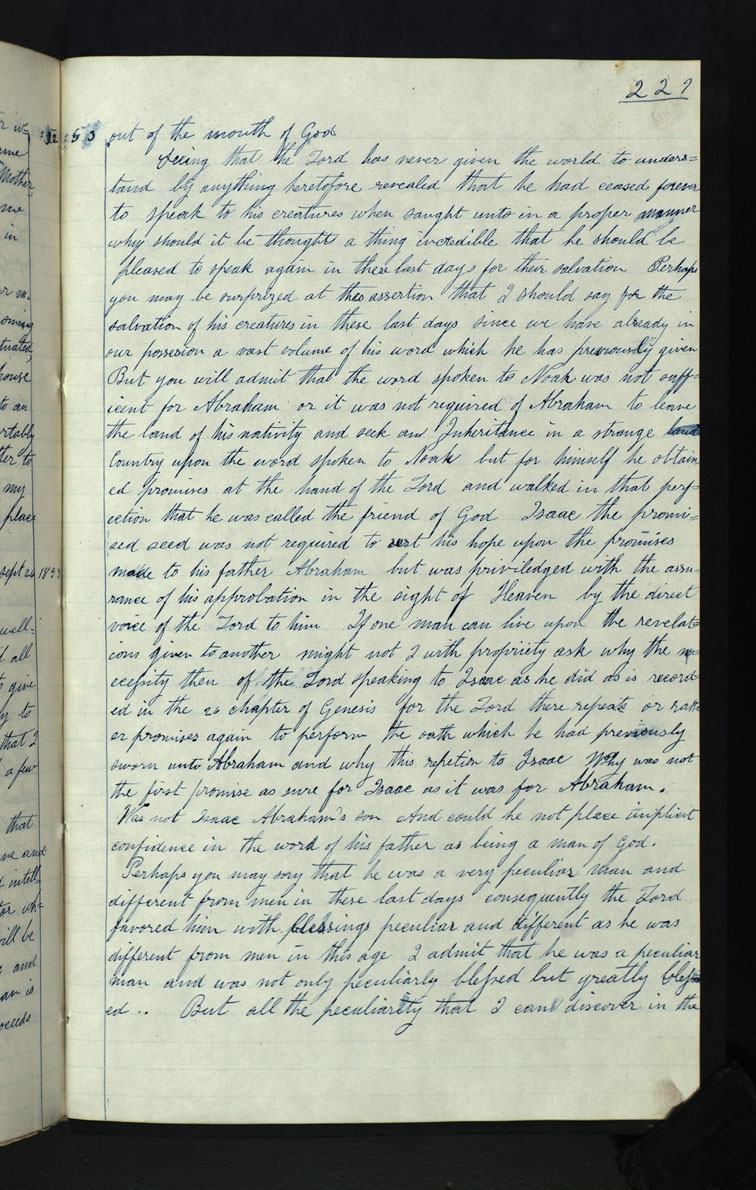 227
out of the mouth of God
Seeing that the Lord has never given the world to unders=
tand by anything heretofore revealed that he had ceased forever
to speak to his creatures when saught unto in a proper manner
why should it be thought a thing incredible that he should be
pleased to speak again in these last days for their salvation Perhaps
you may be surprized at this assertion that I should say for the
salvation of his creatures in these last days since we have already in
our possesion a vast volume of his word which he has previously given
But you will admit that the word spoken to Noah was not suff=
icent for Abraham or it was not required of Abraham to leave
the land of his nativity and seek an Inheritance in a strange land
Country upon the word spoken to Noah but for himself he obtain
ed promises at the hand of the Lord and walked in that perf=
ection that he was called the friend of God Isaac the promi=
sed seed was not required to rest his hope upon the promises
made to his father Abraham but was priviledged with the assu=
rance of his approbation in the sight of Heaven by the direct
voice of the Lord to him If one man can live upon the revelat=
ions given to another might not I with propriety ask why the n
ecessity then of the Lord speaking to Isaac as he did as is record
ed in the 26 chapter of Genesis for the Lord there repeats or rath
er promises again to perform the oath which he had previously
sworn unto Abraham and why this repetion to Isaac Why was not
the first promise as sure for Isaac as it was for Abraham.
Was not Isaac Abraham's son And could he not place implicit
confidence in the word of his father as being a man of God.
Perhaps you may say that he was a very peculiar man and
different from men in these last days consequently the Lord
favored him with blessings peculiar and different as he was
different from men in this age I admit that he was a peculiar
man and was not only peculiarly blessed but greatly bless
ed .. But all the peculiarity that I can discover in the
Mother
in
house
to an
my
place
Sept 24 1833
well=
all
give
to
that I
a few
that
and
will be
and
is